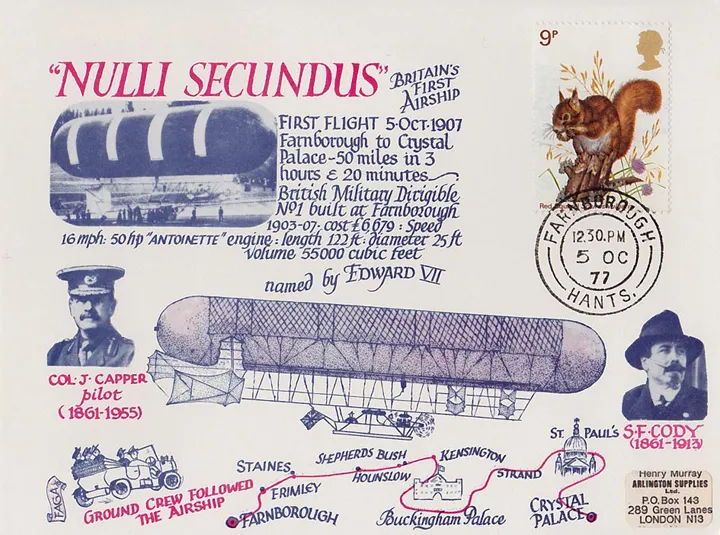 "NULLI SECUNDUS"
BRITAIN'S
FIRST
AIRSHIP
FIRST FLIGHT 5·OCT·1907
Farnborough to Crystal
Palace - 50 miles in 3
hours & 20 minutes
British Military Dirigible
No1 built at Farnborough
1903-07· cost £6679 : Speed
16 mph: 50 hp "ANTOINETTE" engine: length 122 ft: diameter 25 ft
volume 55000 cubic feet
named by EDWARD VII
9P
FARNBOROUGH
12.30.PM
5 OC
77
HANTS.
COL·J·CAPPER
pilot
(1861-1955)
S·F·CODY
(1861-1913)
GROUND CREW FOLLOWED
THE AIRSHIP
FAGA
FARNBOROUGH
FRIMLEY
STAINES
SHEPHERDS BUSH
HOUNSLOW
KENSINGTON
Buckingham Palace
STRAND
ST PAUL'S
CRYSTAL
PALACE
Henry Murray
ARLINGTON SUPPLIES
Ltd.
P.O. Box 143
289 Green Lanes
LONDON N13